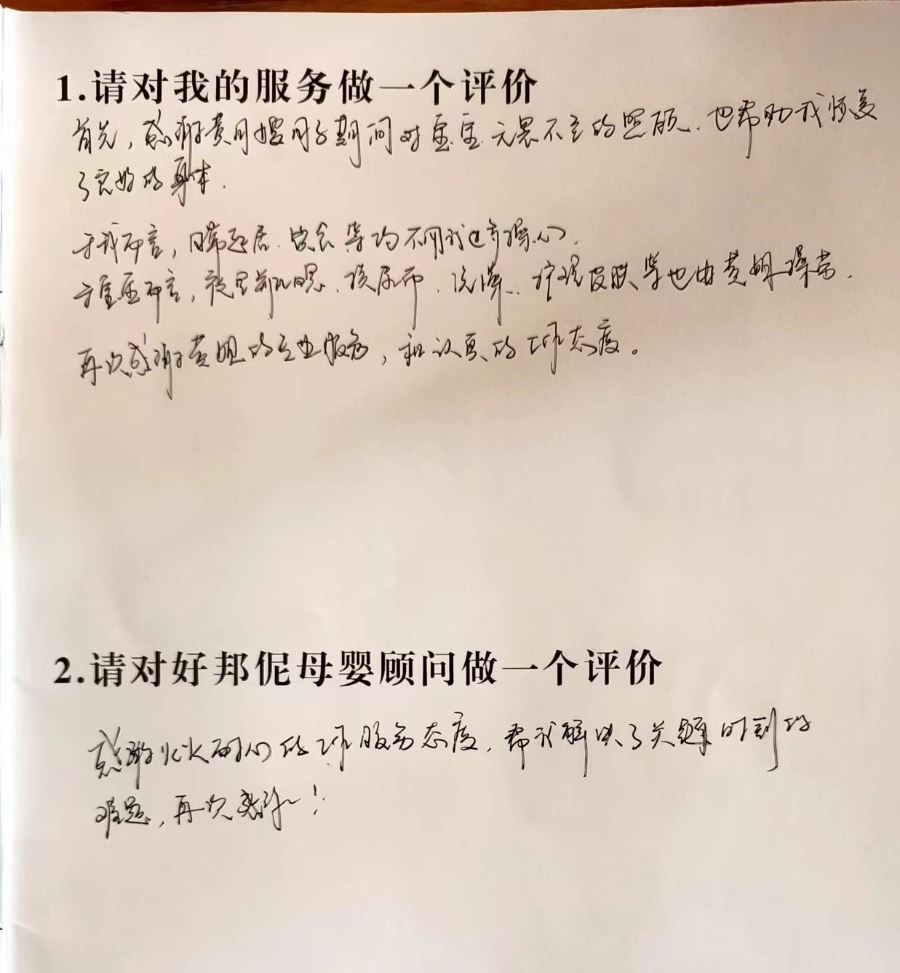 1.请对我的服务做一个评价
首先，感谢黄月嫂月子期间对宝宝无微不至的照顾，也帮助我恢复
了完好的身体．
于我而言，日常起居．饮食等均不用我这产操心．
于宝宝而言，夜里．换尿布．洗澡．护理皮肤等也由黄姐操劳．
再次感谢黄姐的专业服务，和认真的工作态度。
2.请对好邦伲母婴顾问做一个评价
感谢耐心的工作服务态度，帮我解决了关键时刻的
难题，再次感谢～！